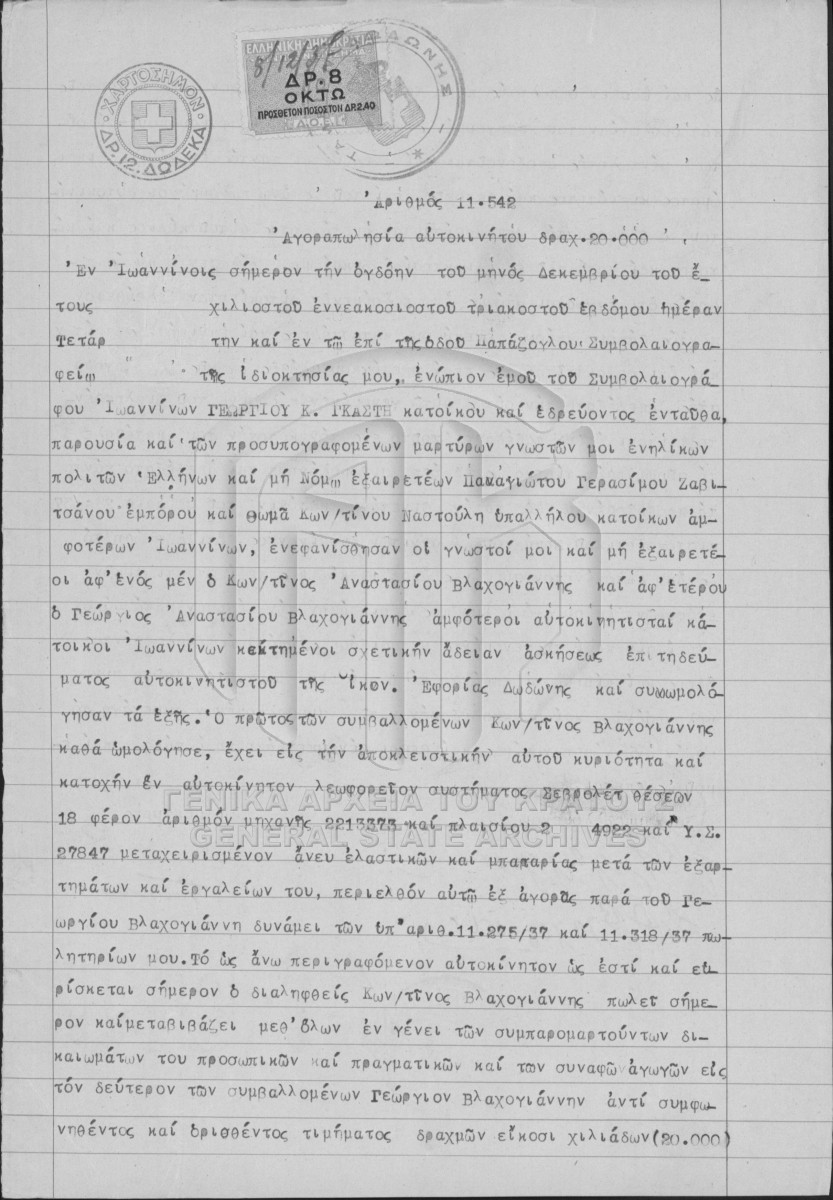 ΧΑΡΤΟΣΗΜΟΝ
ΔΡ. 12. ΔΩΔΕΚΑ
ΕΛΛΗΝΙΚΗ ΔΗΜΟΚΡΑΤΙΑ
8/12/37
ΔΡ. 8
ΟΚΤΩ
ΠΡΟΣΘΕΤΟΝ ΠΟΣΟΣΤΟΝ ΔΡ. 2,40
Ἀριθμός 11.542
Ἀγοραπωλησία αὐτοκινήτου δραχ.20.000
Ἐν Ἰωαννίνοις σήμερον τήν ὀγδόην τοῦ μηνός Δεκεμβρίου τοῦ ἔ-
τους χιλιοστοῦ ἐννεακοσιοστοῦ τριακοστοῦ ἑβδόμου ἡμέραν
Τετάρ την καί ἐν τῷ ἐπί τῆς ὁδοῦ Παπάζογλου Συμβολαιογρα-
φείῳ τῆς ἰδιοκτησίας μου, ἐνώπιον ἐμοῦ τοῦ Συμβολαιογρά-
φου Ἰωαννίνων ΓΕΩΡΓΙΟΥ Κ. ΓΚΑΣΤΗ κατοίκου καί ἑδρεύοντος ἐνταῦθα,
παρουσία καί τῶν προσυπογραφομένων μαρτύρων γνωστῶν μοι ἐνηλίκων
πολιτῶν Ἑλλήνων καί μή Νόμῳ ἐξαιρετέων Παναγιώτου Γερασίμου Ζαβι-
τσάνου ἐμπόρου καί Θωμᾶ Κων/τίνου Ναστούλη ὑπαλλήλου κατοίκων ἀμ-
φοτέρων Ἰωαννίνων, ἐνεφανίσθησαν οἱ γνωστοί μοι καί μή ἐξαιρετέ-
οι ἀφ'ἑνός μέν ὁ Κων/τῖνος Ἀναστασίου Βλαχογιάννης καί ἀφ'ἑτέρου
ὁ Γεώργιος Ἀναστασίου Βλαχογιάννης ἀμφότεροι αὐτοκινητισταί κά-
τοικοι Ἰωαννίνων κεκτημένοι σχετικήν ἄδειαν ἀσκήσεως ἐπιτηδεύ-
ματος αὐτοκινητιστοῦ τῆς Οἰκον. Ἐφορίας Δωδώνης καί συνωμολό-
γησαν τά ἑξῆς. Ὁ πρῶτος τῶν συμβαλλομένων Κων/τῖνος Βλαχογιάννης
καθά ὡμολόγησε, ἔχει εἰς τήν ἀποκλειστικήν αὐτοῦ κυριότητα καί
κατοχήν ἕν αὐτοκίνητον λεωφορεῖον συστήματος Σεβρολέτ θέσεων
ΓΕΝΙΚΑ ΑΡΧΕΙΑ ΤΟΥ ΚΡΑΤΟΥΣ
18 φέρον ἀριθμόν μηχανῆς 2213373 καί πλαισίου 2 4922 καί Υ.Σ.
GENERAL STATE ARCHIVES
27847 μεταχειρισμένον ἄνευ ἐλαστικῶν καί μπαταρίας μετά τῶν ἐξαρ-
τημάτων καί ἐργαλείων του, περιελθόν αὐτῷ ἐξ ἀγορᾶς παρά τοῦ Γε-
ωργίου Βλαχογιάννη δυνάμει τῶν ὑπ'ἀριθ.11.275/37 καί 11.318/37 πω-
λητηρίων μου.Τό ὡς ἄνω περιγραφόμενον αὐτοκίνητον ὡς ἐστί καί εὑ-
ρίσκεται σήμερον ὁ διαληφθείς Κων/τῖνος Βλαχογιάννης πωλεῖ σήμε-
ρον καίμεταβιβάζει μεθ'ὅλων ἐν γένει τῶν συμπαρομαρτούντων δι-
καιωμάτων του προσωπικῶν καί πραγματικῶν καί των συναφῶν ἀγωγῶν εἰς
τόν δεύτερον τῶν συμβαλλομένων Γεώργιον Βλαχογιάννην ἀντί συμφω-
νηθέντος καί ὁρισθέντος τιμήματος δραχμῶν εἴκοσι χιλιάδων(20.000)